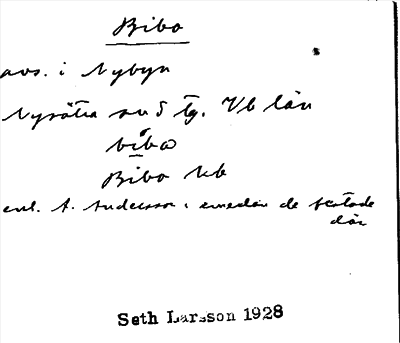 Bibo
avs. i Nybyn
Nysätra sn S tg. Vb län
bibω
Bibo Ub
enl. A. Andersson i emedan de
där
Seth Larsson 1928